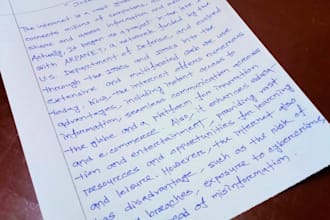 The internet is a
connects millions of computers
share and access information and
Actually, It began as a project funded by the
with ARPANET, a network
U.S. Department of Defense, and evolved
through the 1980s and 1990s into the
extensive and multifaceted web we use
today. Now, the internet offers numerous
advantages, including instant access to
information, seamless communication across
the globe and a platform for innovation
and e-commerce. Also, it enhances educa-
tion and entertainment, providing vast
resources and opportunities for learning
and leisure. However, the internet also
has disadvantages, such as the risk of
breaches, exposure to cybercrime
spread of misinformation